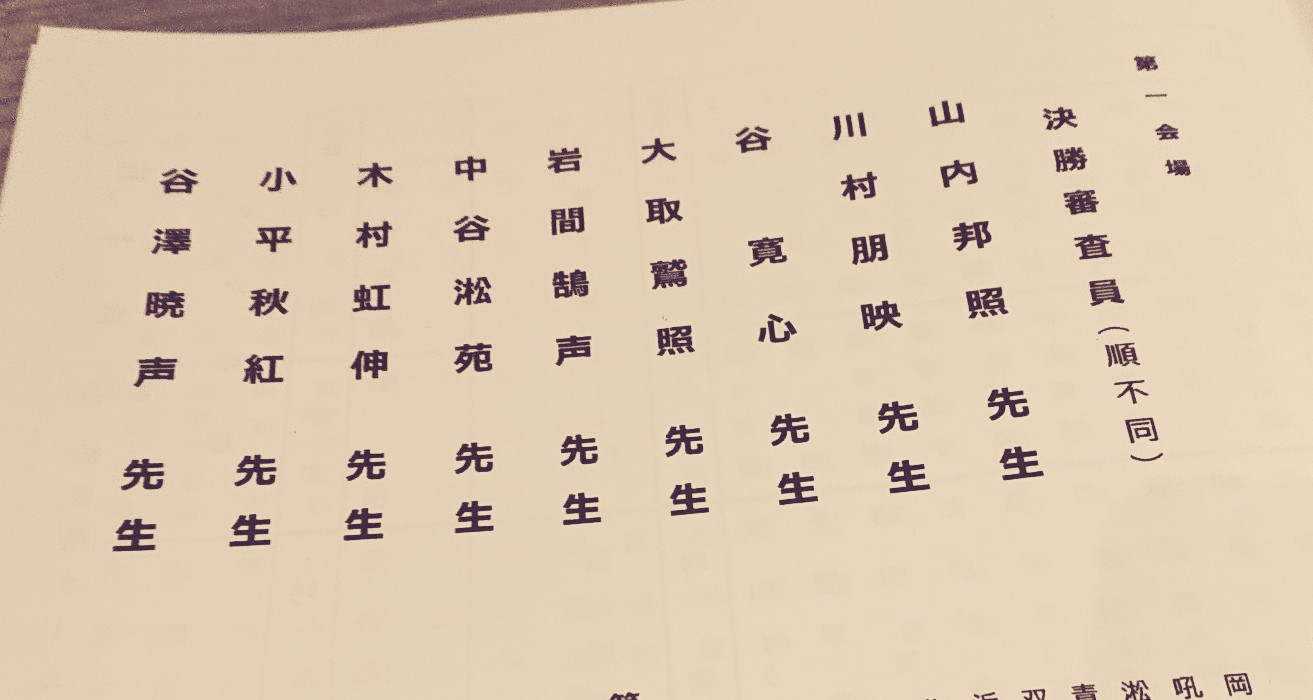 第一会場
決勝審査員(順不同)
山内邦照先生
川村朋映先生
谷寛心先生
大取鷲照先生
岩間鵠声先生
中谷淞苑先生
木村虹伸先生
小平秋紅先生
谷澤暁声先生
岡
吼
淞
青
双